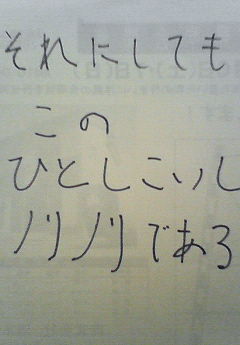 それにしても
この
ひとしこいし
ノリノリである